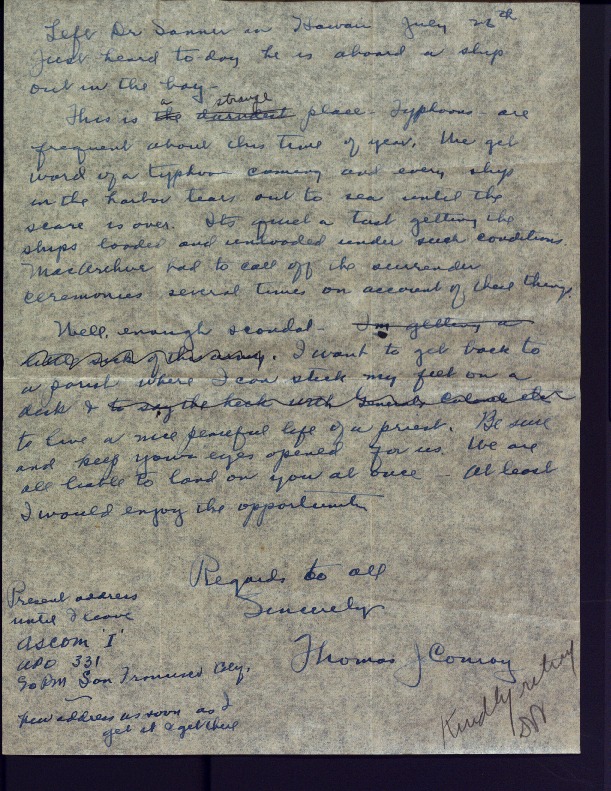 Left Dr Sanner in Hawaii July 22th
Just heard to day he is aboard a ship
out in the bay -
This is the darndest a strange place - Typhoons - are
frequent about this time of year. We get
word of a typhoon coming and every ship
in the harbor tears out to sea until the
scare is over. Its quiet a task getting the
ships loaded and unloaded under such conditions
MacArthur had to call off the surrender
ceremonies several times on account of these things.
Well, enough scandal - I'm getting a
little sick of this army. I want to get back to
a parish where I can stick my feet on a
desk & to say the heck with Generals Colonels
to live a nice peaceful life of a priest. Be sure
and keep your eyes opened for us. We are
all liable to land on you at once - At least
I would enjoy the opportunity
Regards to all
Sincerely
Thomas J Conroy
Present address
until I leave
ASCOM 'I'
APO 331
% PM San Francisco
new address as soon as I
get it & get there
Kindly